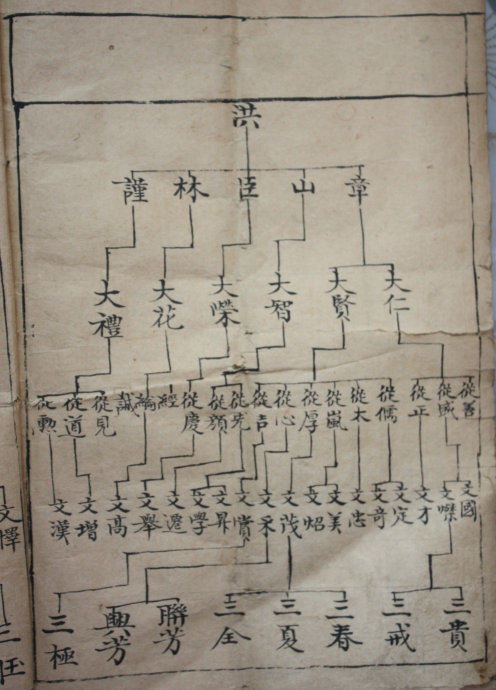 洪
章 山 臣 林 謹
大仁 大賢 大智 大榮 大花 大禮
從善 從盛 從正 從儒 從太 從嵐 從厚 從心 從吉 從先 從額 從慶 經 綸 誠 從見 從道 從勲
文國 文傑 文才 文定 文奇 文忠 文美 文炤 文茂 文采 文賞 文昇 文學 文選 文舉 文高 文增 文漢
三貴 三戒 三春 三夏 三全 聯芳 興芳 三極
文擇